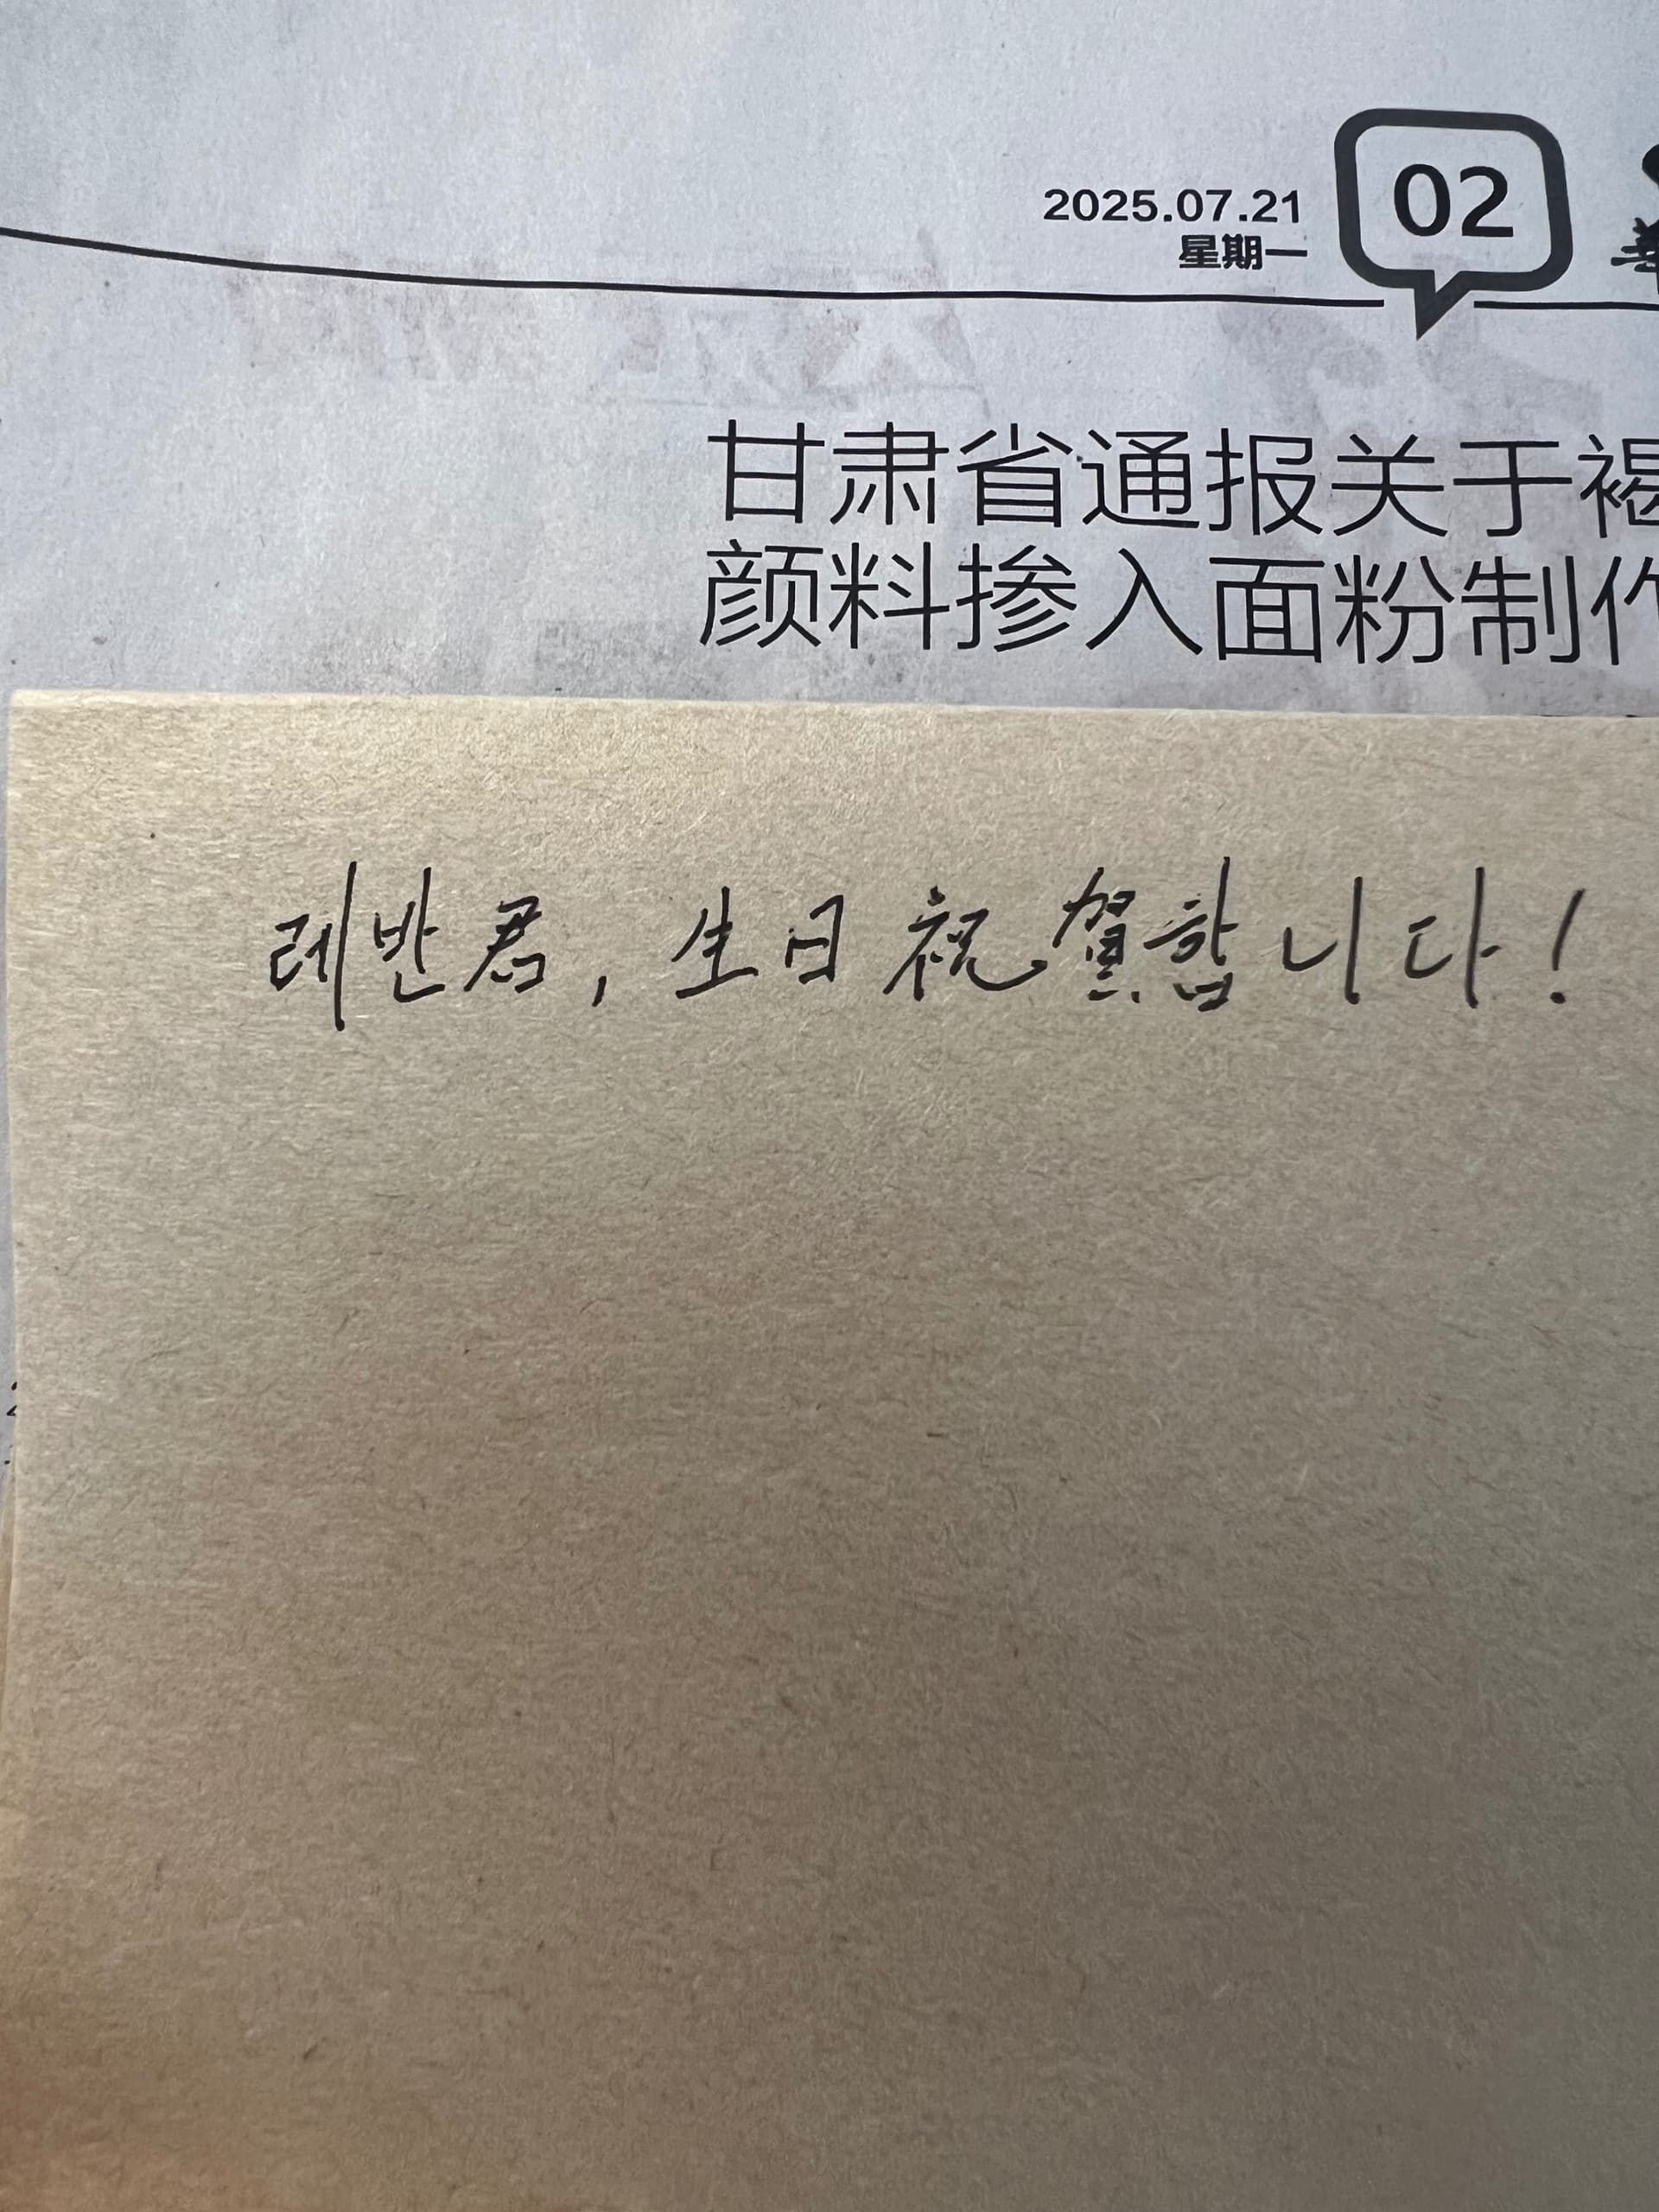 2025.07.21
星期一
02
甘肃省通报关于褐
颜料掺入面粉制作
레반君, 生日 祝賀합니다!